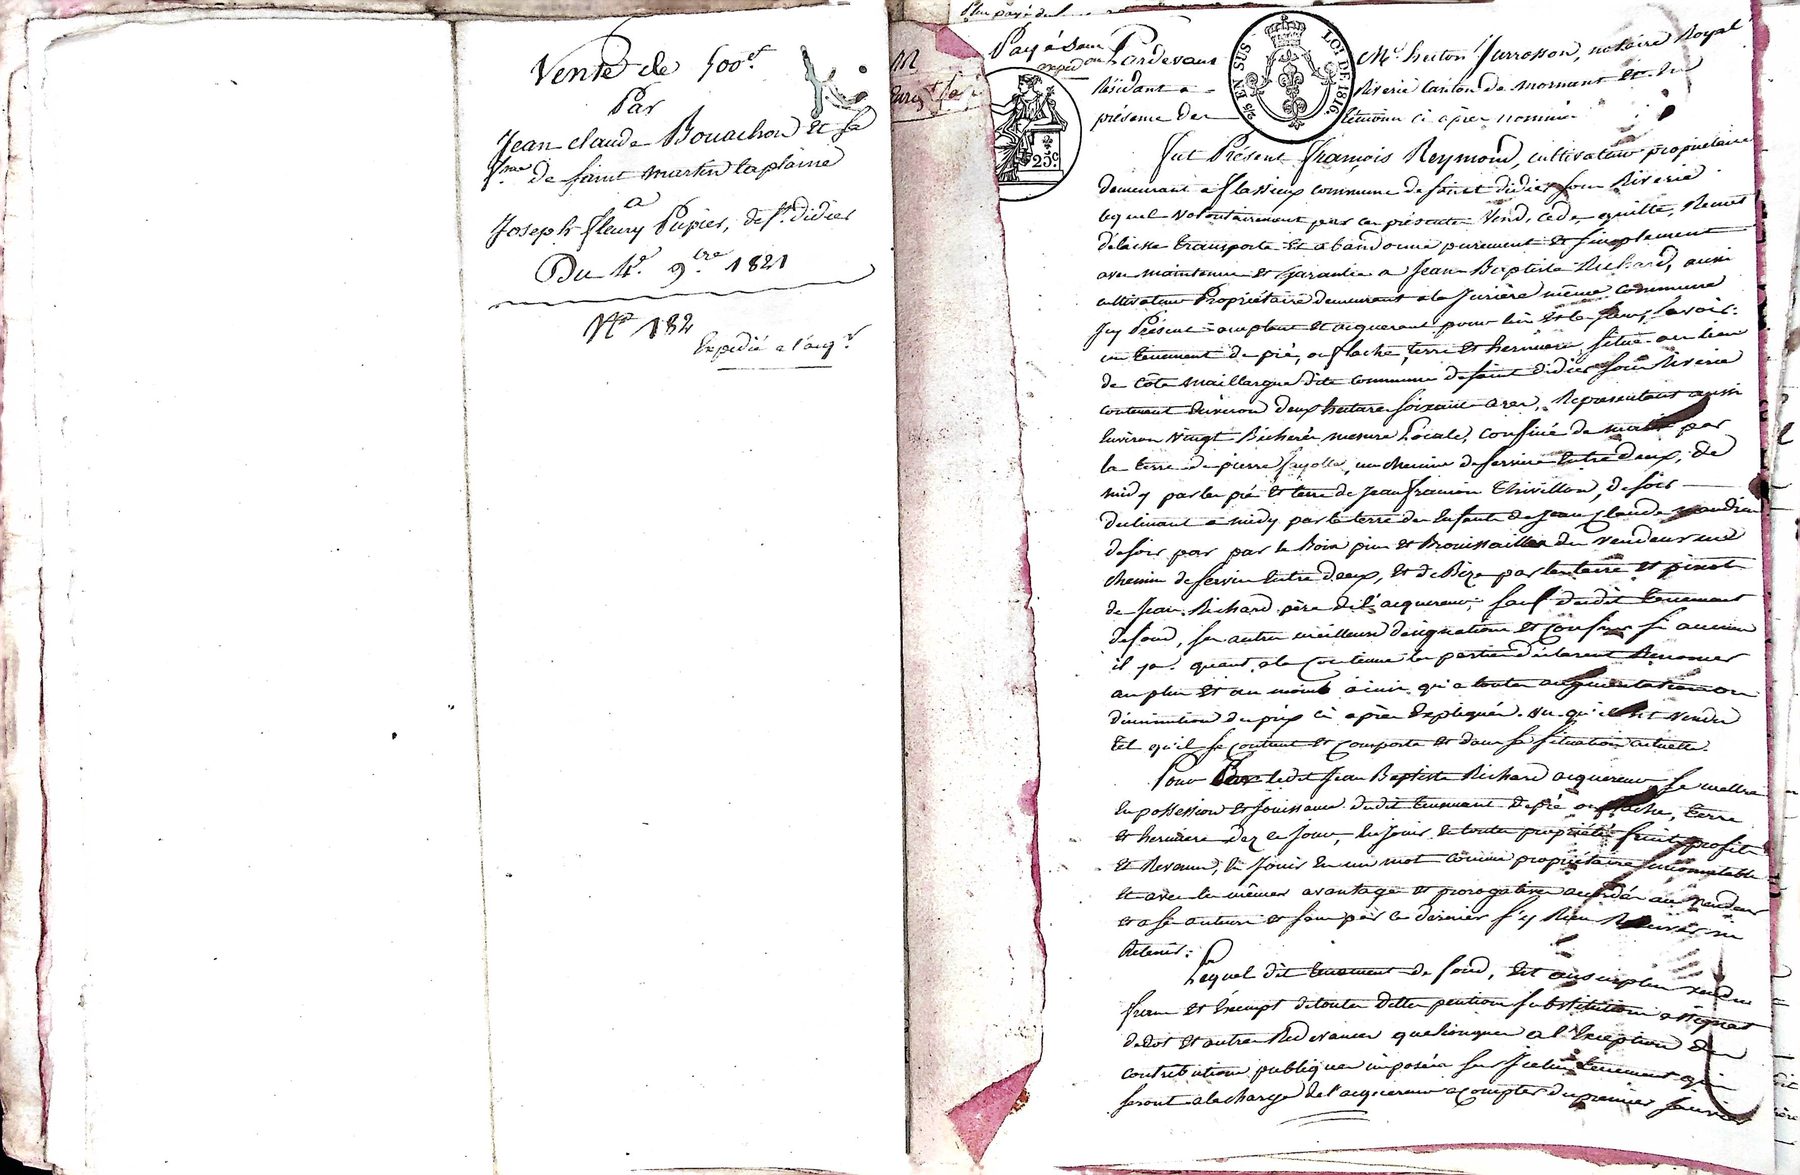 Vente de 500 f.
Par
Jean claude Bouachon et sa
fme de saint martin laplaine
a
Joseph fleury Pupier, de st. didier
Du 4e. 9.bre 1821
No 182
Expédié a l'acqr.
Pardevant Me. heiton Jurrosson, notaire Royal
Résidant a Riverie canton de mornant et en
présence des témoins ci après nommés
2/s EN SUS LOI DE 1816.
25c.
fut Présent françois Reymond, cultivateur propriétaire
demeurant a flassieux commune de saint didier sous Riverie
lequel volontairement par ces présentes vend, cede, quitte, Remet
délaisse transporte et abandonne purement et simplement
avec maintenue et garantie a Jean Baptiste Richard, aussi
cultivateur Propriétaire demeurant a la Jurière même commune
Icy Présent acceptant et acquerant pour lui et les siens, savoir:
un tenement de pré, ou flache, terre et hermiere, situé au lieu
de côte maillargue dite commune de saint didier sous Riverie
contenant environ deux hectares soixante ares, Représentant aussi
Environ vingt Bicherées mesure Locale, confiné de matin par
la terre de pierre fayolle, un chemin de service entre deux, de
midy par les pré et terre de Jean francois Thivillon, de soir
declinant a midy par la terre des Enfants de Jean Claude
de soir par par le Bois pins et Brouissailles du vendeur un
chemin de service entre deux, et de Bize par les terre et pinot
de Jean Richard père de l'acquereur; sauf dudit tenement
de fond, ses autres meilleures désignations et confins si aucuns
il y a. quant a la contenue les parties déclarent Renoncer
au plus et au moins ainsi qu'a toutes augmentation ou
diminution du prix ci après Expliqués. vu qu'il est vendu
tel qu'il se contient et comporte et dans sa situation actuelle.
Pour ledit Jean Baptiste Richard acquereur se mettre
En possession et Jouissance dudit tenement de pré ou flache, terre
et hermiere dez ce Jour, En Jouir en toute propriété fruits profits
et Revenus, en Jouir En un mot comme propriétaire incomutable
et avec les mêmes avantages et prerogatives accordés au vendeur
et a ses auteurs et sans par ce dernier s'y Rien Reserver ni
Retenir:
Lequel dit tenement de fond, Est aussi vendu
franc et Exempt de toutes dettes pentions substitutions assignat
de dot et autres Redevances quelconques a l'Exception des
contributions publiques imposées sur Icelui tenement qui
seront a la charge de l'acquereur a compter du premier Janvier